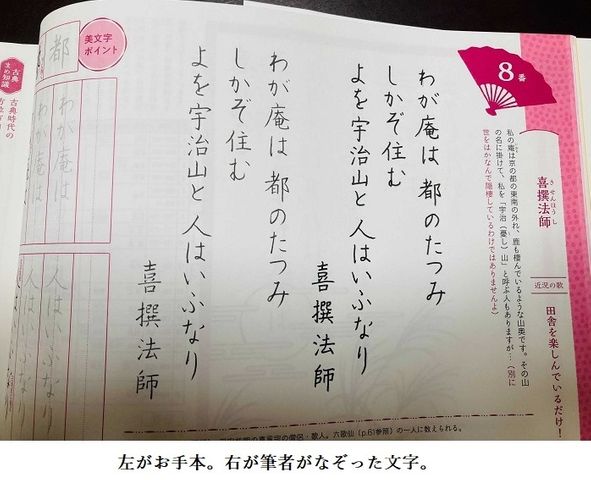 8番
喜撰法師
きせんほうし
近況の歌
田舎を楽しんでいるだけ！
私の庵は京の都の東南の外れ、鹿も棲んでいるような山奥です。その山
の名に掛けて、私を「宇治（憂し）山」と呼ぶ人もありますが…（別に
世をはかなんで隠棲しているわけではありませんよ）
わが庵は 都のたつみ
しかぞ住む
よを宇治山と 人はいふなり
喜撰法師
わが庵は 都のたつみ
しかぞ住む
よを宇治山と 人はいふなり
喜撰法師
の僧侶・歌人。六歌仙（p.61参照）の一人に数えられる。
美文字
ポイント
都
わが庵は
わが庵は
人はいふなり
人はいふなり
古典
まめ知識
古典時代の
左がお手本。右が筆者がなぞった文字。